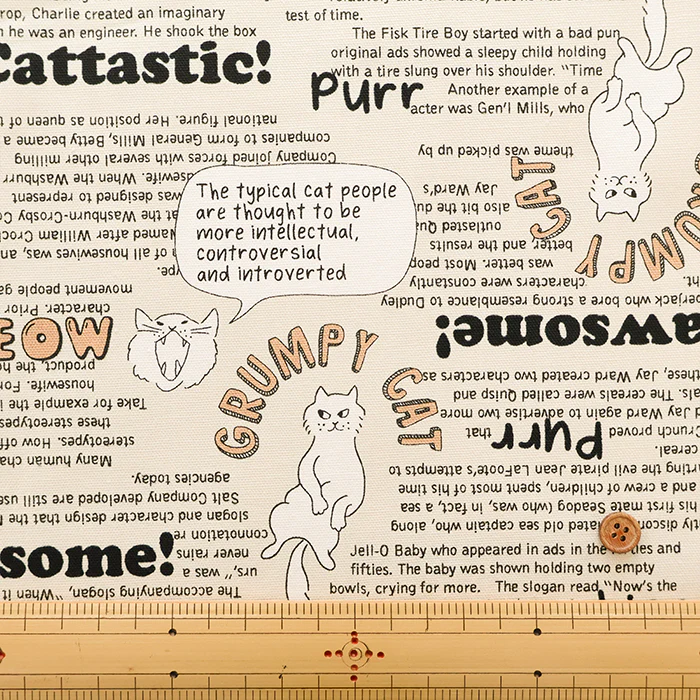 rop, Charlie created an imaginary
n he was an engineer. He shook the box
Cattastic!
test of time.
The Fisk Tire Boy started with a bad pun
original ads showed a sleepy child holding
with a tire slung over his shoulder. "Time
Purr
Another example of a
acter was Gen'l Mills, who
theme was picked up by
CAT
GRUMPY
Jay Ward's
also bit the du
outlasted Qu
better, and the results
was better. Most peop
characters were constantly
perjack who bore a strong resemblance to Dudley
awsome!
these, Jay Ward created two characters as
als. The cereals were called Quisp and
d Jay Ward again to advertise two more
Crunch proved
Purr
that
cereal.
rting the evil pirate Jean LaFoote's attempts to
and a crew of children, spent most of his time
his first mate Seadog (who was, in fact, a sea
ated old sea captain who, along
national figure. Her position as queen of t
companies to form General Mills, Betty became a
Company joined forces with several other milling
housewife. When the Washburn
was designed to represent
at the Washburn-Crosby Co
Named after William Croc
n of all housewives, was, an
type.
The typical cat people
are thought to be
more intellectual,
controversial
and introverted
movement people ga
character. Prior
MEO
the product, the
housewife. For
Take for example the i
these stereotypes
stereotypes. How off
Many human cha
GRUMPY CAT
agencies today.
Salt Company developed are still use
slogan and character design that the
connotation re
never rains
urs," was a
The accompanying slogan, "When it
some!
Jell-O Baby who appeared in ads in the
ties and
fifties. The baby was shown holding two empty
bowls, crying for more. The slogan read, "Now's the